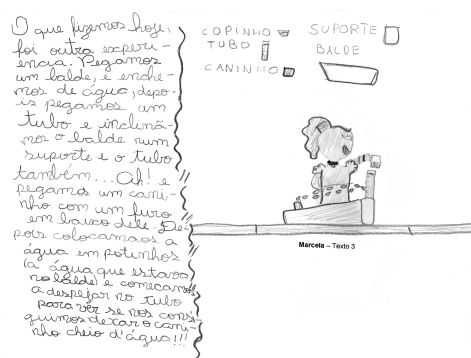 O que fizemos hoje,
foi outra experi-
ência. Pegamos
um balde, e enche-
mos de água, depo-
is pegamos um
tubo e inclinã-
mos o balde num
suporte e o tubo
também... Ah! e
pegamos um cani-
nho com um furo
em baixo dele. De-
pois colocamaos a
água em potinhos
(a água que estava
no balde) e começamos
a despejar no tubo
para ver se nos conse-
guimos deixar o cani-
nho cheio d'água!!!
COPINHO
TUBO
CANINHO
SUPORTE
BALDE
Marcela – Texto 3